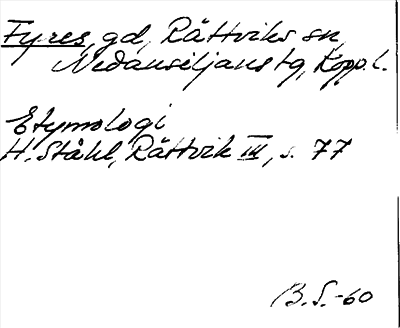 Fyres, gd, Rättviks sn,
Nedansiljans tg, Kopp. l.
Etymologi
H. Ståhl, Rättvik III, s. 77
B.S.-60